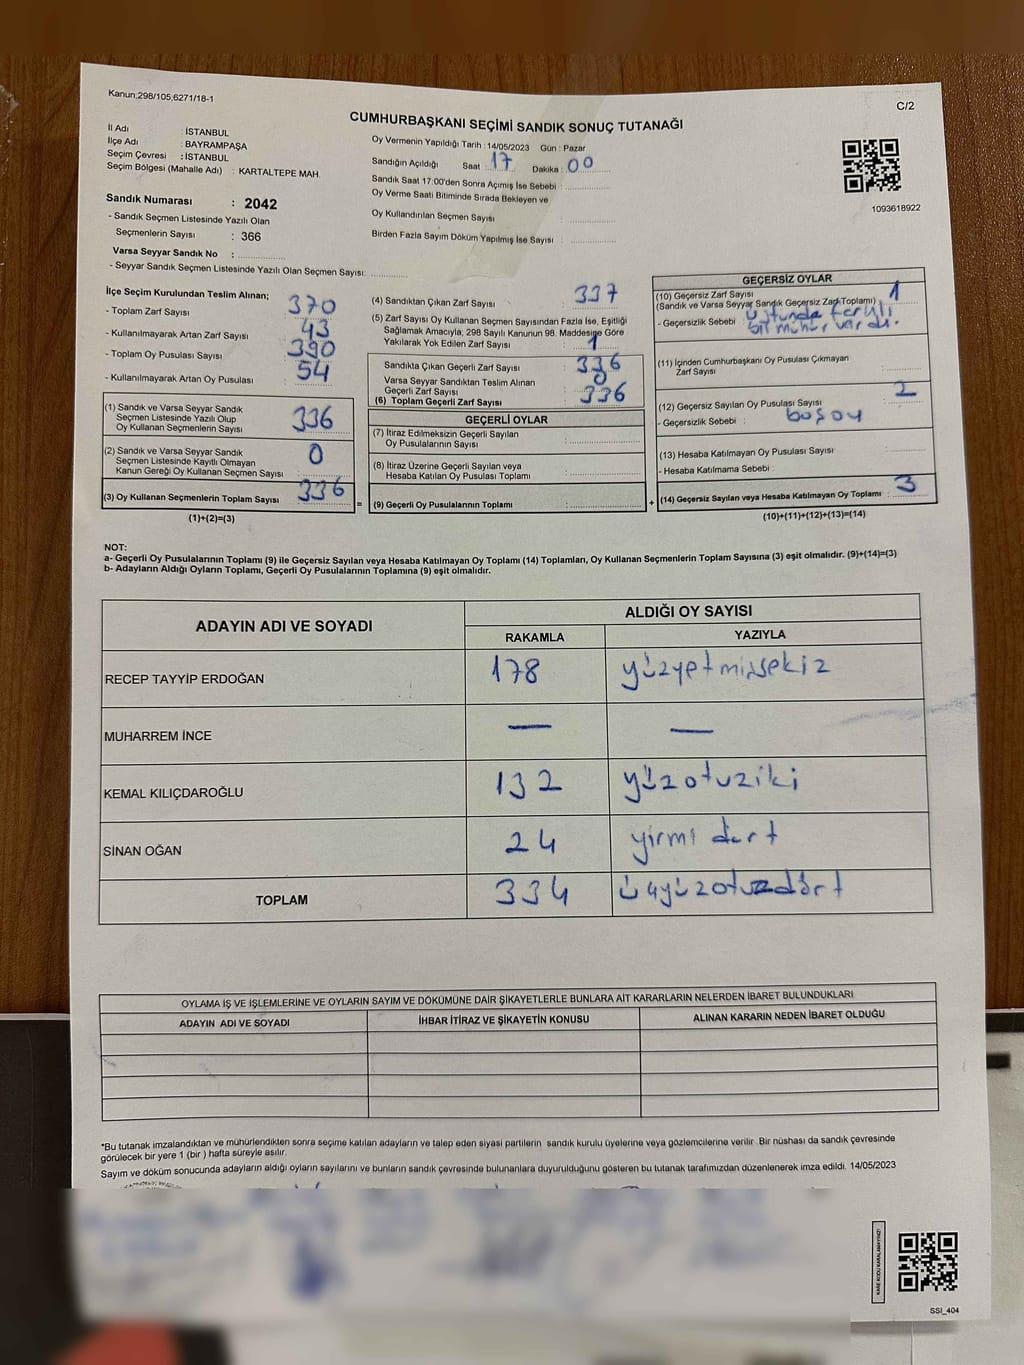 Kanun;298/105;6271/18-1
C/2
CUMHURBAŞKANI SEÇİMİ SANDIK SONUÇ TUTANAĞI
İl Adı : İSTANBUL
İlçe Adı : BAYRAMPAŞA
Seçim Çevresi : İSTANBUL
Seçim Bölgesi (Mahalle Adı) : KARTALTEPE MAH.
Oy Vermenin Yapıldığı Tarih : 14/05/2023 Gün : Pazar
Sandığın Açıldığı Saat : 17 Dakika : 00
Sandık Saat 17:00'den Sonra Açımış İse Sebebi :
Oy Verme Saati Bitiminde Sırada Bekleyen ve
Oy Kullandırılan Seçmen Sayısı :
Birden Fazla Sayım Döküm Yapılmış İse Sayısı :
1093618922
Sandık Numarası : 2042
- Sandık Seçmen Listesinde Yazılı Olan
Seçmenlerin Sayısı : 366
Varsa Seyyar Sandık No :
- Seyyar Sandık Seçmen Listesinde Yazılı Olan Seçmen Sayısı:
İlçe Seçim Kurulundan Teslim Alınan;
- Toplam Zarf Sayısı : 370
- Kullanılmayarak Artan Zarf Sayısı : 43
- Toplam Oy Pusulası Sayısı : 390
- Kullanılmayarak Artan Oy Pusulası : 54
(1) Sandık ve Varsa Seyyar Sandık
Seçmen Listesinde Yazılı Olup
Oy Kullanan Seçmenlerin Sayısı : 336
(2) Sandık ve Varsa Seyyar Sandık
Seçmen Listesinde Kayıtlı Olmayan
Kanun Gereği Oy Kullanan Seçmen Sayısı : 0
(3) Oy Kullanan Seçmenlerin Toplam Sayısı : 336
(1)+(2)=(3)
(4) Sandıktan Çıkan Zarf Sayısı : 337
(5) Zarf Sayısı Oy Kullanan Seçmen Sayısından Fazla İse, Eşitliği
Sağlamak Amacıyla, 298 Sayılı Kanunun 98. Maddesine Göre
Yakılarak Yok Edilen Zarf Sayısı : 1
Sandıkta Çıkan Geçerli Zarf Sayısı : 336
Varsa Seyyar Sandıktan Teslim Alınan
Geçerli Zarf Sayısı : 0
(6) Toplam Geçerli Zarf Sayısı : 336
GEÇERLİ OYLAR
(7) İtiraz Edilmeksizin Geçerli Sayılan
Oy Pusulalarının Sayısı :
(8) İtiraz Üzerine Geçerli Sayılan veya
Hesaba Katılan Oy Pusulası Toplamı :
(9) Geçerli Oy Pusulalarının Toplamı :
GEÇERSİZ OYLAR
(10) Geçersiz Zarf Sayısı
(Sandık ve Varsa Seyyar Sandık Geçersiz Zarf Toplamı) : 1
- Geçersizlik Sebebi : üstünde farklı
bir mühür vardı.
(11) İçinden Cumhurbaşkanı Oy Pusulası Çıkmayan
Zarf Sayısı :
(12) Geçersiz Sayılan Oy Pusulası Sayısı : 2
- Geçersizlik Sebebi : boş oy
(13) Hesaba Katılmayan Oy Pusulası Sayısı :
- Hesaba Katılmama Sebebi :
(14) Geçersiz Sayılan veya Hesaba Katılmayan Oy Toplamı : 3
(10)+(11)+(12)+(13)=(14)
NOT:
a- Geçerli Oy Pusulalarının Toplamı (9) ile Geçersiz Sayılan veya Hesaba Katılmayan Oy Toplamı (14) Toplamları, Oy Kullanan Seçmenlerin Toplam Sayısına (3) eşit olmalıdır. (9)+(14)=(3)
b- Adayların Aldığı Oyların Toplamı, Geçerli Oy Pusulalarının Toplamına (9) eşit olmalıdır.
ADAYIN ADI VE SOYADI ALDIĞI OY SAYISI
RAKAMLA YAZIYLA
RECEP TAYYİP ERDOĞAN 178 yüzyetmişsekiz
MUHARREM İNCE — —
KEMAL KILIÇDAROĞLU 132 yüzotuziki
SİNAN OĞAN 24 yirmi dört
TOPLAM 334 üçyüzotuzdört
OYLAMA İŞ VE İŞLEMLERİNE VE OYLARIN SAYIM VE DÖKÜMÜNE DAİR ŞİKAYETLERLE BUNLARA AİT KARARLARIN NELERDEN İBARET BULUNDUKLARI
ADAYIN ADI VE SOYADI İHBAR İTİRAZ VE ŞİKAYETİN KONUSU ALINAN KARARIN NEDEN İBARET OLDUĞU
*Bu tutanak imzalandıktan ve mühürlendikten sonra seçime katılan adayların ve talep eden siyasi partilerin sandık kurulu üyelerine veya gözlemcilerine verilir. Bir nüshası da sandık çevresinde
görülecek bir yere 1 (bir) hafta süreyle asılır.
Sayım ve döküm sonucunda adayların aldığı oyların sayılarını ve bunların sandık çevresinde bulunanlara duyurulduğunu gösteren bu tutanak tarafımızdan düzenlenerek imza edildi. 14/05/2023
KARE KODU KARALAMAYINIZ!
SSI_404